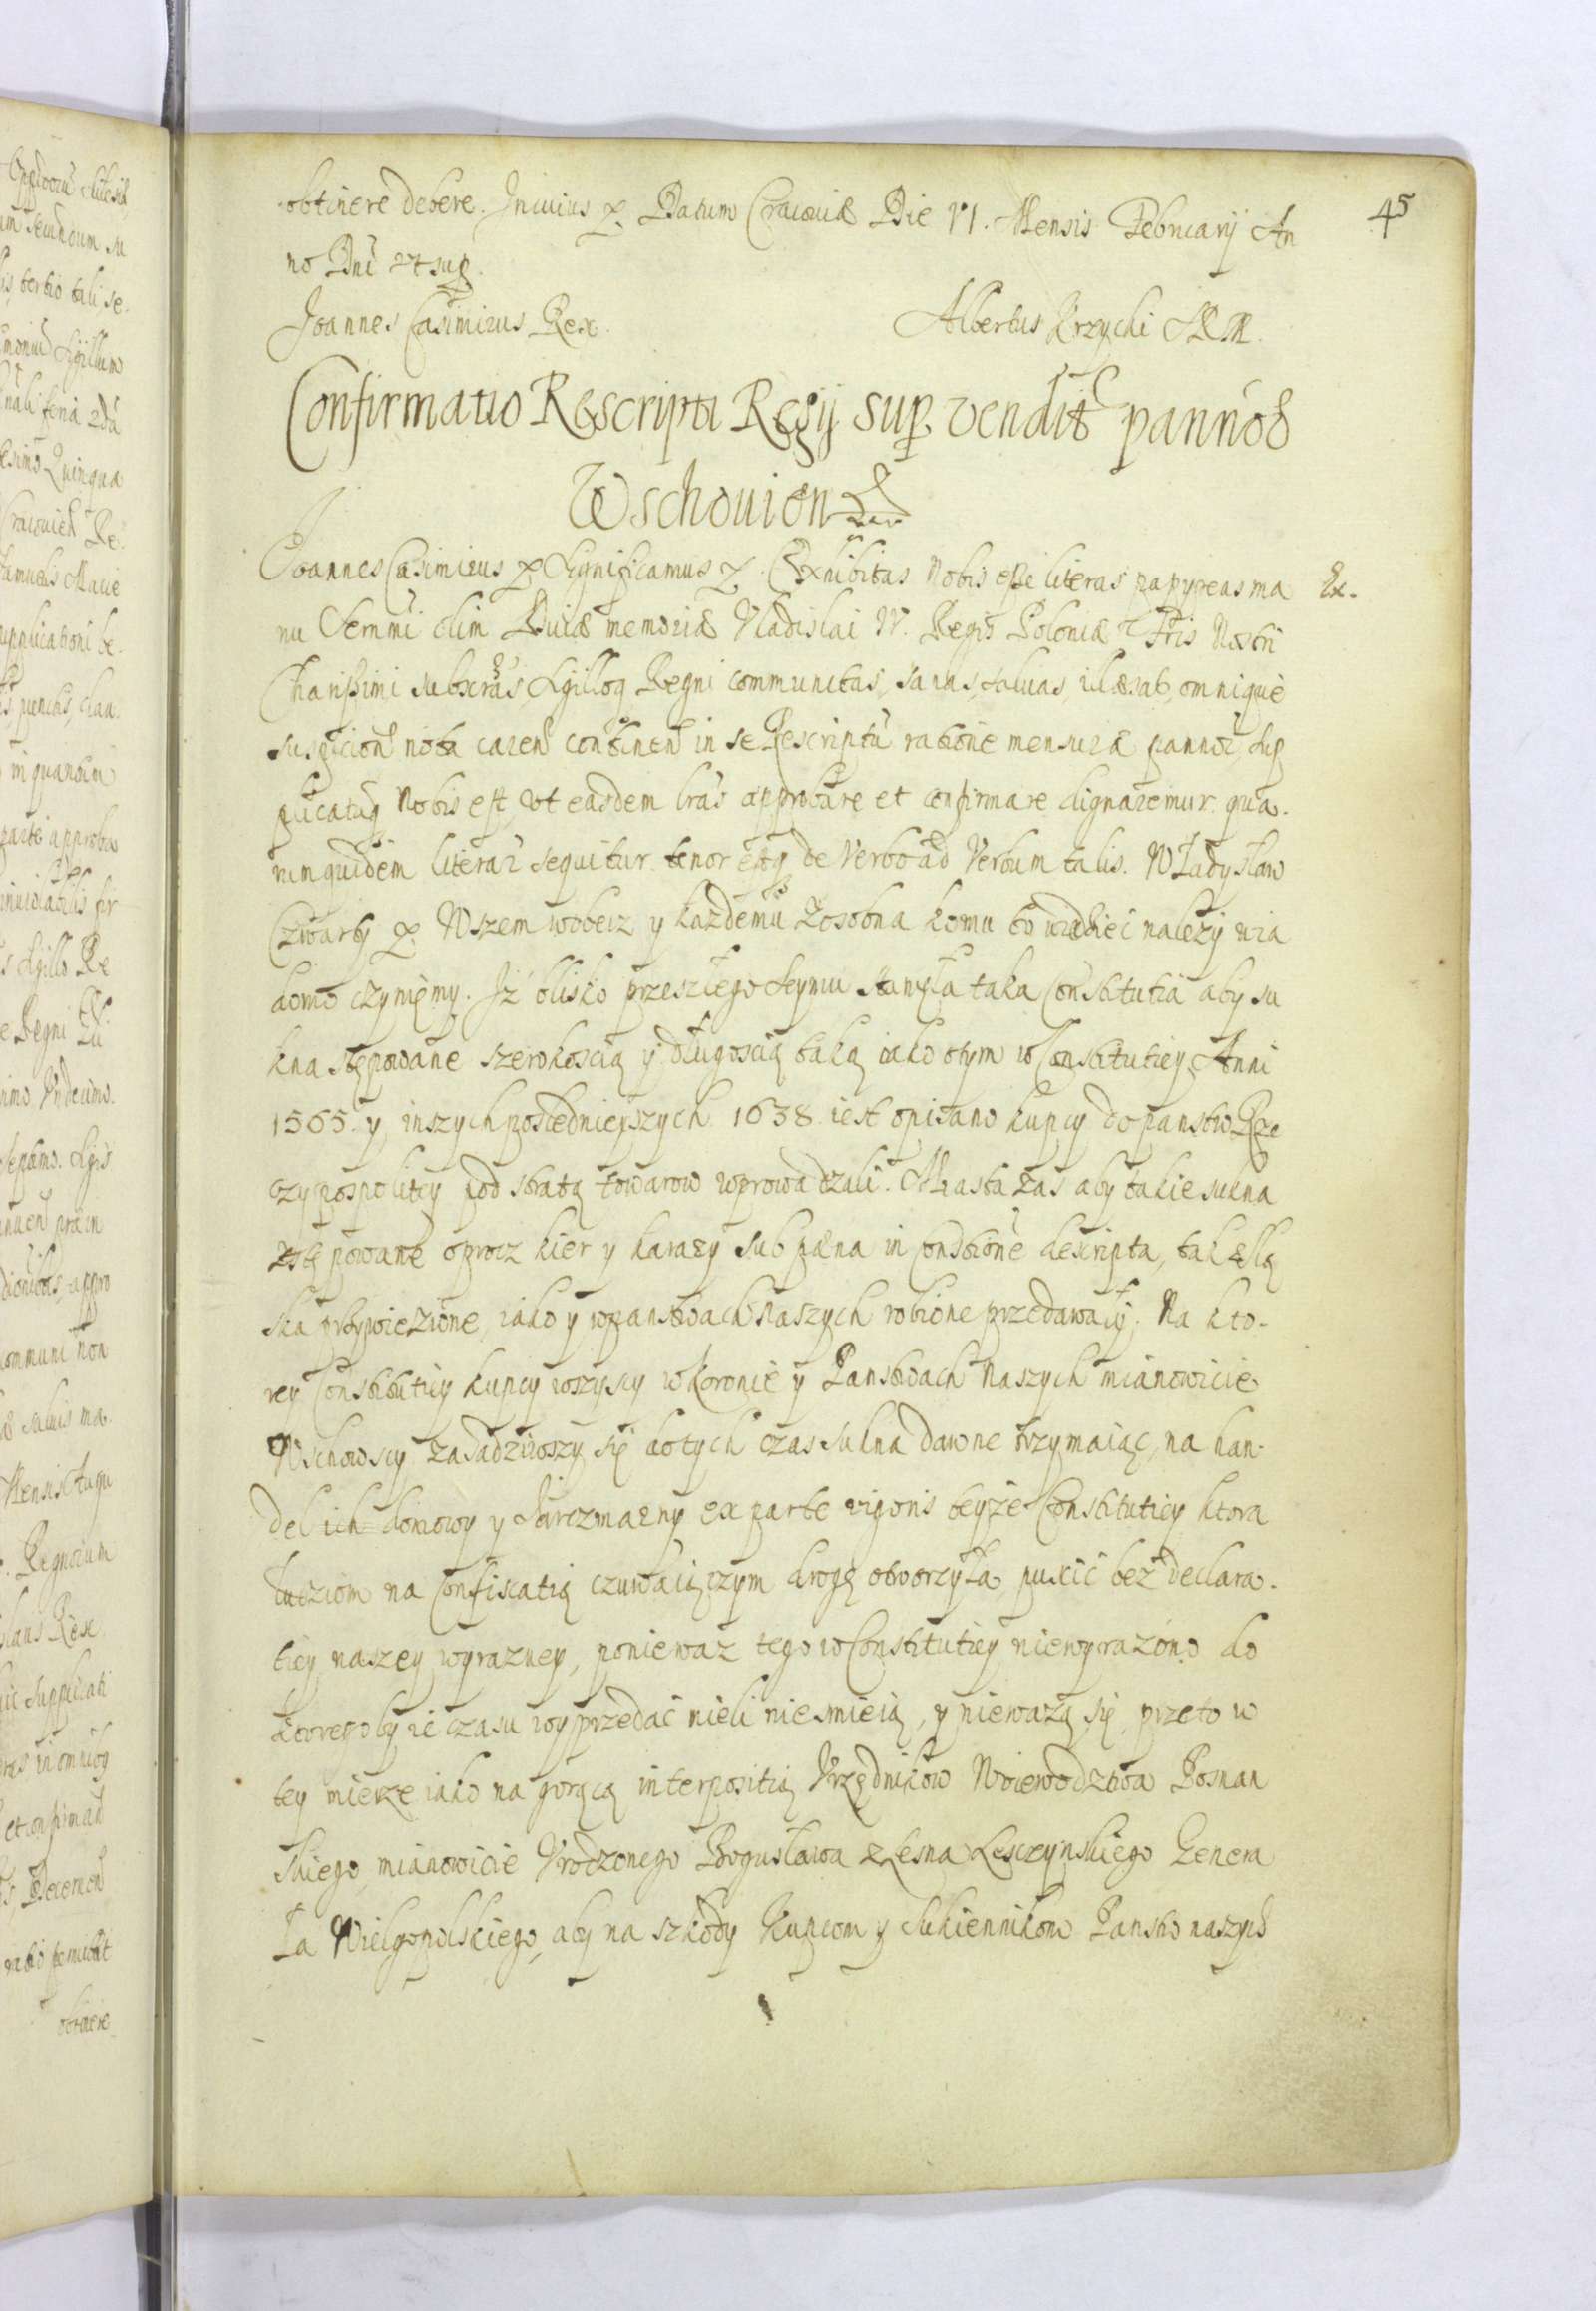 45
obtinere debere. In cuius p. Datum Cracoviæ Die VI. Mensis Februarij An
no Dni ut sup.
Joannes Casimirus Rex.
Albertus Krzycki
Confirmatio Rescripti Regij sup. vendit pannor
Wschouien
Joannes Casimirus p Significamus &. Exhibitas Nobis esse literas papyreas ma
Ex.
nu Sermi olim Divæ memoriæ Vladislai IV. Regis Poloniæ & Fris Nostri
Charissimi subscras, Sgilloq Regni communitas, sanas, salvas, illæsas, omnique
suspicion nota caren contnen in se Rescriptu ratione mensuræ pannor, sup
plicatuq Nobis est, ut easdem lras approbare et confirmare dignaremur. qua.
rum quidem literar sequitur tenor estq de Verbo ad Verbum talis. Władysław
Czwarty p. Wszem wobecz y kazdemu Zosobna komu to wiedzieć należy wia
domo czyniemy. Iż blisko przeszłego Seymu stanęła taka Constitutia aby su
kna stępowane szerokoscią y długoscią taką iako otym w Constitutiey Anni
1565. y inszych poslednieyszych 1638. iest opisano kupcy do panstw Rze
czypospolitey pod stratą towarow wprowadzali. Miasta zas aby takie sukna
zstępowane oprocz kier y karazy sub pæna in Constione descripta, tak z Slą
ska przywiezione, iako y w panstwach Naszych robione przedawały. Na kto-
rey Constitutiey kupcy wszyscy w Koronie y Panstwach Naszych mianowicie
Wschowscy zasadziwszy się do tych czas sukna dawne trzymaiąc, na han-
del ich domowy y Jarczmarzny ex parte rigoris teyże Constitutiey ktora
ludziom na Confiscatią czuwaiączym drogę otworzyła, puscić bez declara-
tiey naszey wyrazney, poniewaz tego w Constitutiey niewyrazono do
ktoregoby ie czasu wyprzedać mieli nie smieią, y nieważą się, przeto w
tey mierze iako na gorącą interpositią Vrzędnikow Woiewodztwa Posnan
skiego, mianowicie Vrodzonego Bogusława z Lesna Lesczynskiego Genera
ła Wielgopolskiego, aby na szkody Kupcom y Sukiennikom Panstw naszych